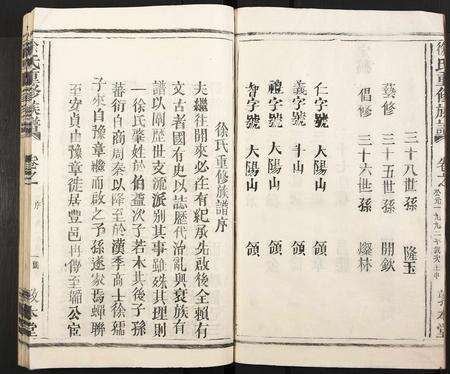 徐氏重修族譜 卷之一
三十八世孫 隆玉
發修 三十五世孫 開欽
倡修 三十六世孫 燦林
仁字號 大陽山 領
義字號 斗山 領
禮字號 大陽山 領
智字號 大陽山 領
徐氏重修族譜序
夫繼往開來必在有紀承先啟後全賴有
文古者國有史以誌歷代治亂興衰族有
譜以別歷世支流派別其事雖殊其理則
一徐氏肇姓於伯益次子若木其後子孫
蕃衍自商周秦以降至於漢季高士徐孺
子來自豫章繼而啟之予孫遂家焉蟬聯
至安貞由豫章徙居豐邑再傳至 公宦
徐氏重修族譜 卷之一 序